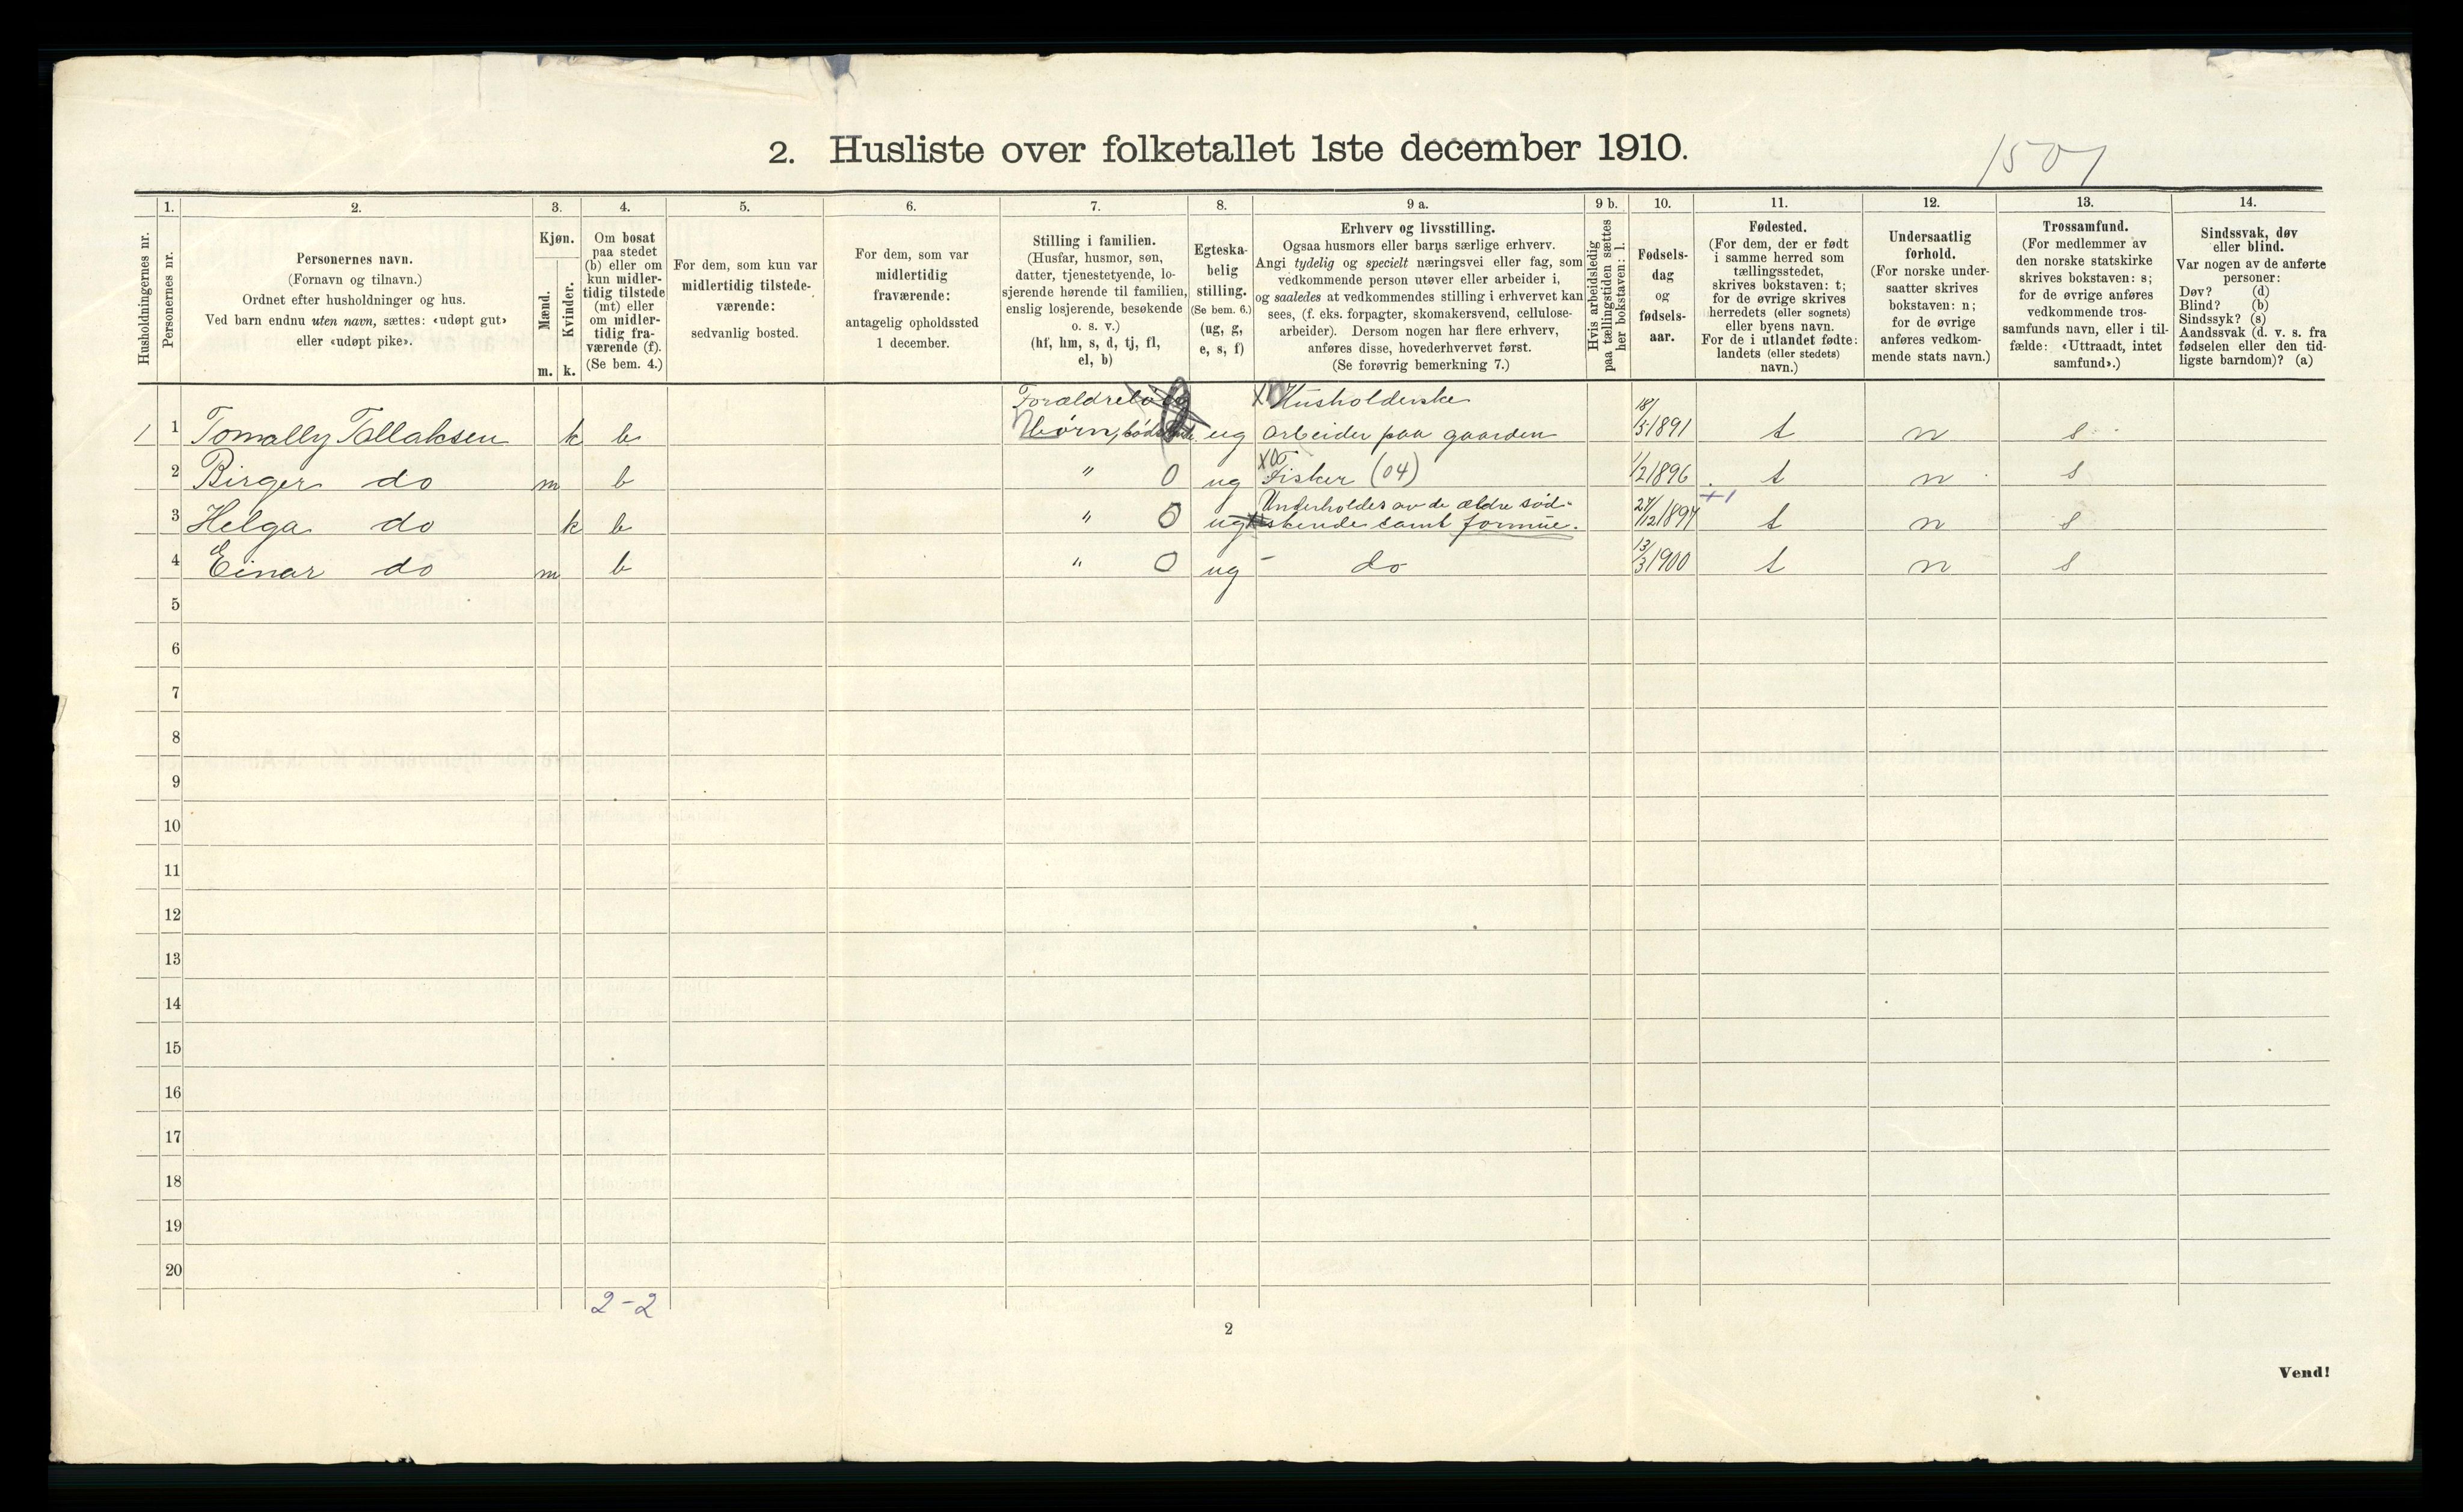 2. Husliste over folketallet 1ste december 1910.
1501
Husholdningernes nr.
1.
Personernes nr.
2.
Personernes navn.
(Fornavn og tilnavn.)
Ordnet efter husholdninger og hus.
Ved barn endnu uten navn, sættes: «udøpt gut»
eller «udøpt pike».
3.
Kjøn.
Mænd.
Kvinder.
m. k.
4.
Om bosat
paa stedet
(b) eller om
kun midler-
tidig tilstede
(mt) eller
om midler-
tidig fra-
værende (f).
(Se bem. 4.)
5.
For dem, som kun var
midlertidig tilstede-
værende:
sedvanlig bosted.
6.
For dem, som var
midlertidig
fraværende:
antagelig opholdssted
1 december.
7.
Stilling i familien.
(Husfar, husmor, søn,
datter, tjenestetyende, lo-
sjerende hørende til familien,
enslig losjerende, besøkende
o. s. v.)
(hf, hm, s, d, tj, fl,
el, b)
8.
Egteska-
belig
stilling.
(Se bem. 6.)
(ug, g,
e, s, f)
9 a.
Erhverv og livsstilling.
Ogsaa husmors eller barns særlige erhverv.
Angi tydelig og specielt næringsvei eller fag, som
vedkommende person utøver eller arbeider i,
og saaledes at vedkommendes stilling i erhvervet kan
sees, (f. eks. forpagter, skomakersvend, cellulose-
arbeider). Dersom nogen har flere erhverv,
anføres disse, hovederhvervet først.
(Se forøvrig bemerkning 7.)
9 b.
Hvis arbeidsledig
paa tællingstiden sættes
her bokstaven: l.
10.
Fødsels-
dag
og
fødsels-
aar.
11.
Fødested.
(For dem, der er født
i samme herred som
tællingsstedet,
skrives bokstaven: t;
for de øvrige skrives
herredets (eller sognets)
eller byens navn.
For de i utlandet fødte:
landets (eller stedets)
navn.)
12.
Undersaatlig
forhold.
(For norske under-
saatter skrives
bokstaven: n;
for de øvrige
anføres vedkom-
mende stats navn.)
13.
Trossamfund.
(For medlemmer av
den norske statskirke
skrives bokstaven: s;
for de øvrige anføres
vedkommende tros-
samfunds navn, eller i til-
fælde: «Uttraadt, intet
samfund».)
14.
Sindssvak, døv
eller blind.
Var nogen av de anførte
personer:
Døv? (d)
Blind? (b)
Sindssyk? (s)
Aandssvak (d. v. s. fra
fødselen eller den tid-
ligste barndom)? (a)
Forældreløse X0 Husholderske
1 1 Tomally Tollaksen k b Børn, ug arbeider paa gaarden 18/5 1891 t n s
2 Birger do m b " 0 ug X0 Fisker (04) 1/2 1896 t n s
Underholdes av de ældre sød- +1
3 Helga do k b " 0 ug skende samt formue. 27/12 1897 t n s
4 Einar do m b " 0 ug - do 13/3 1900 t n s
5
6
7
8
9
10
11
12
13
14
15
16
17
18
19
20
2-2
2
Vend!